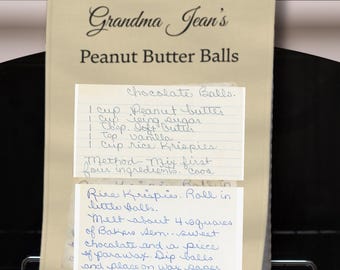 Grandma Jean's
Peanut Butter Balls
Chocolate Balls.
1 cup Peanut butter
1 cup icing sugar
1 tbsp. soft butter
1 tsp vanilla
1 cup rice Krispies
Method - Mix first
four ingredients.
Rice Krispies. Roll in
little balls.
Melt about 4 squares
of Bakers sem.. sweet
chocolate and a piece
of parawax. Dip balls
and place on wax paper